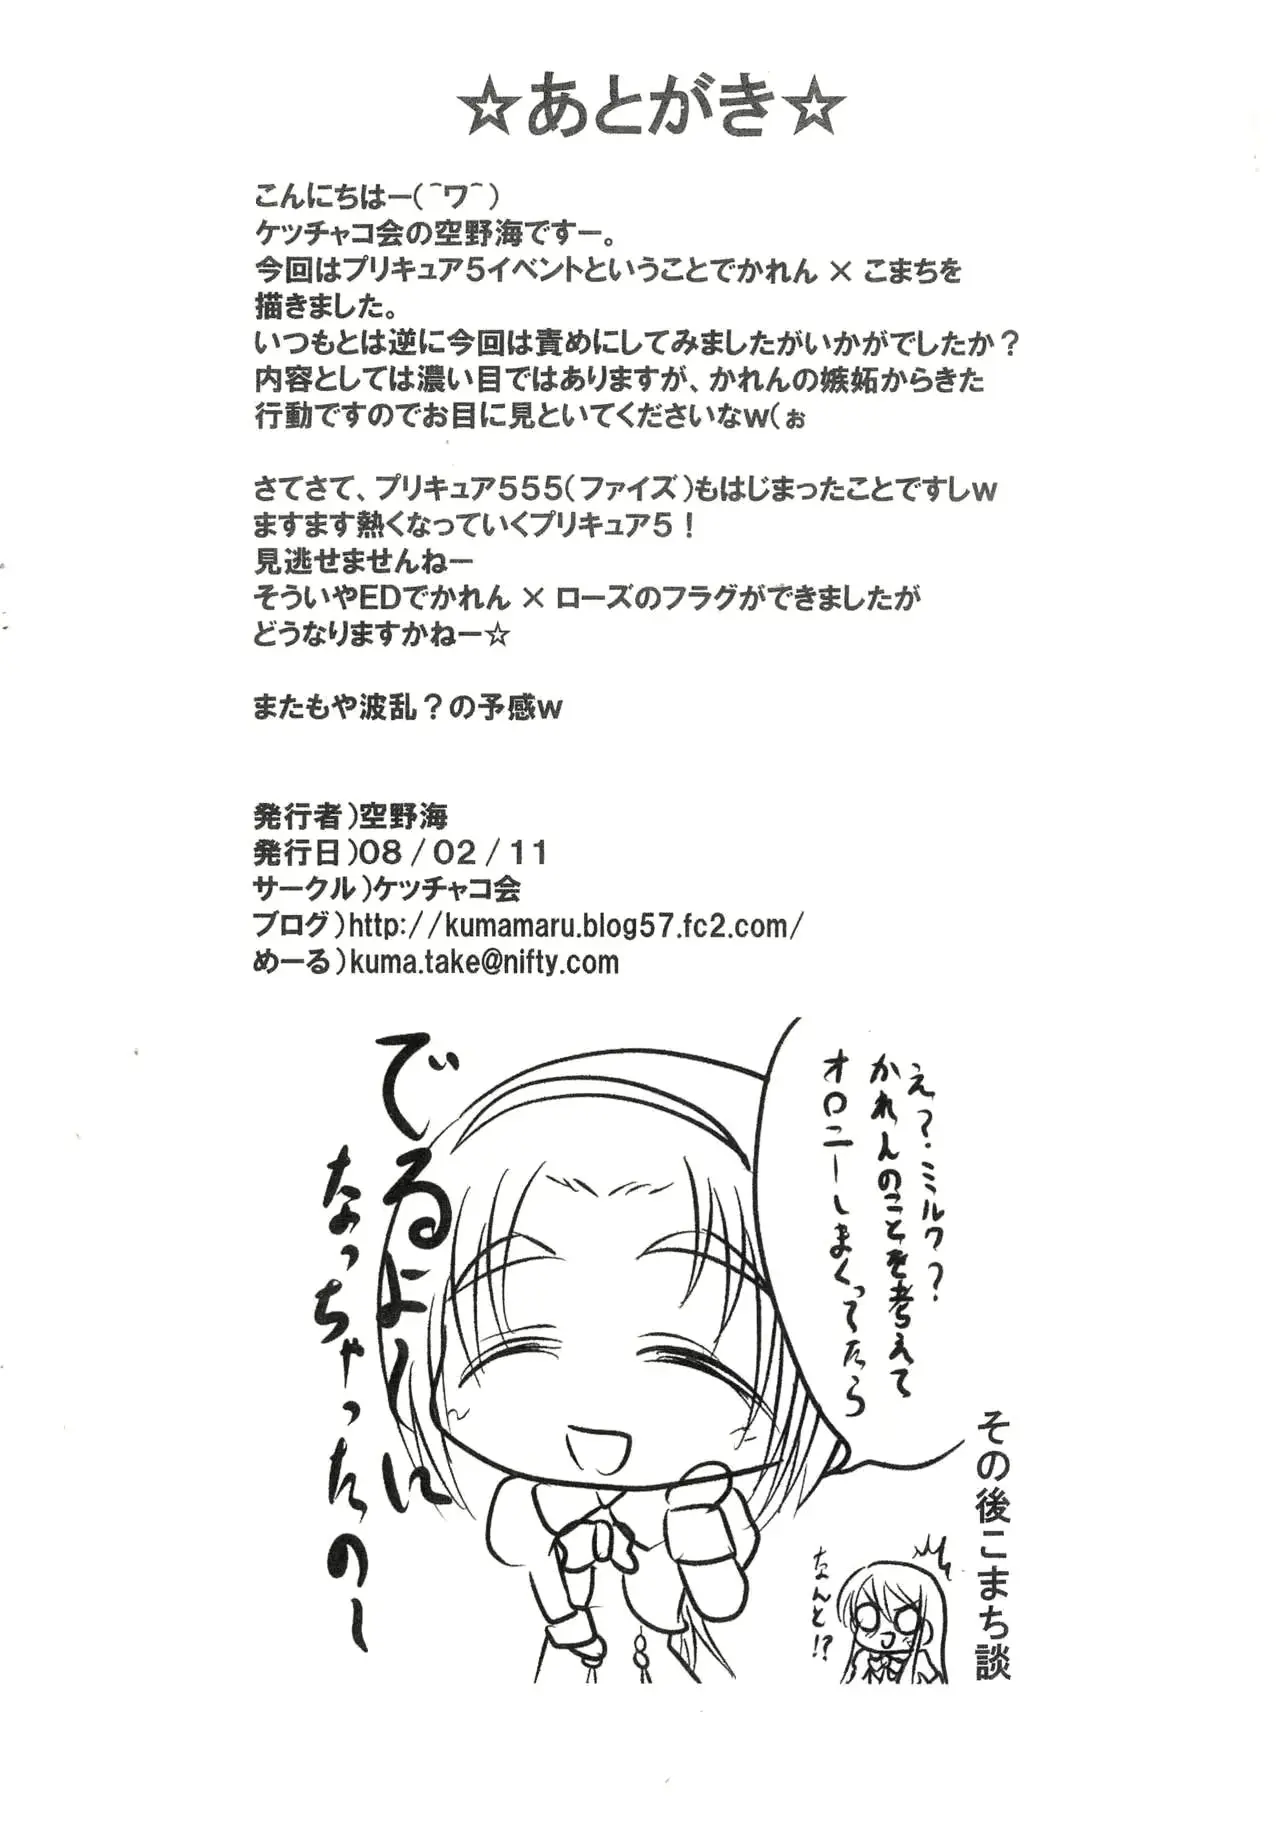 ☆あとがき☆
こんにちはー(＾ワ＾)
ケッチャコ会の空野海ですー。
今回はプリキュア５イベントということでかれん × こまちを
描きました。
いつもとは逆に今回は責めにしてみましたがいかがでしたか？
内容としては濃い目ではありますが、かれんの嫉妬からきた
行動ですのでお目に見といてくださいなｗ（ぉ
さてさて、プリキュア５５５（ファイズ）もはじまったことですしｗ
ますます熱くなっていくプリキュア５！
見逃せませんねー
そういやEDでかれん × ローズのフラグができましたが
どうなりますかねー☆
またもや波乱？の予感ｗ
発行者）空野海
発行日）０８／０２／１１
サークル）ケッチャコ会
ブログ）http://kumamaru.blog57.fc2.com/
めーる）kuma.take@nifty.com
その後こまち談
え？・ミルク？
かれんのことを考えて
オロニーしまくってたら
でるよーに
なっちゃったのー
なんと!?